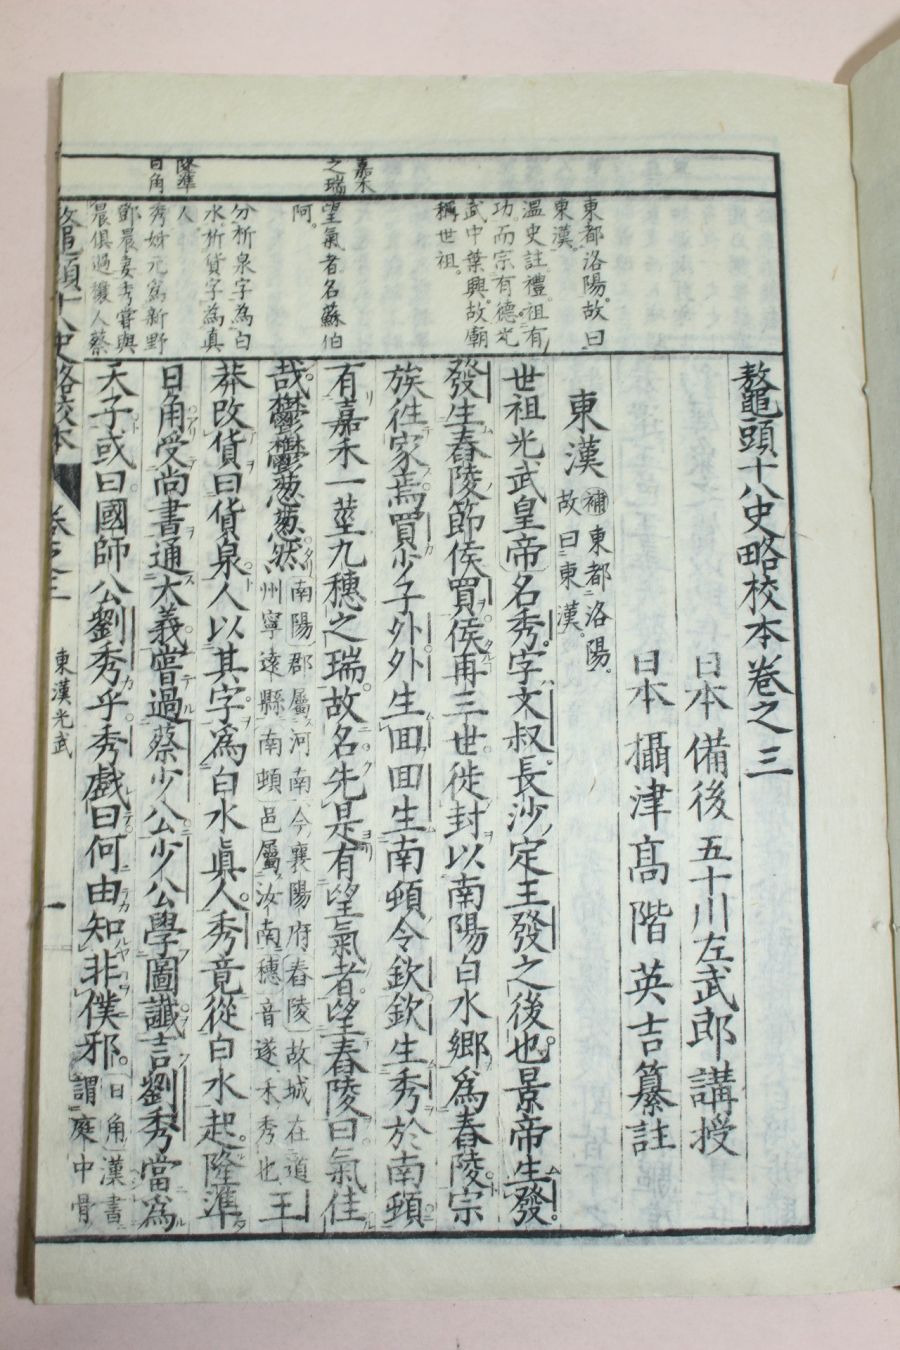 鼇頭十八史略校本卷之三
日本備後五十川左武郎講授
日本攝津髙階英吉纂註
東漢 補東都洛陽。故曰東漢。
世祖光武皇帝名秀。字文叔。長沙定王發之後也。景帝生發。
發生舂陵節侯買。買侯再三世。徙封以南陽白水鄉爲舂陵。宗
族徃家焉。買少子外。外生囬。囬生南頓令欽。欽生秀於南頓
有嘉禾一莖九穗之瑞。故名。先是有望氣者。望舂陵曰氣佳
哉。鬱鬱葱葱然 南陽郡屬河南今襄陽府舂陵故城在道州寧遠縣南頓邑屬汝南穗音遂禾秀也 王
莽改貨曰貨泉。人以其字爲白水眞人。秀竟從白水起。隆準
日角受尚書通大義。嘗過蔡少公。少公學圖讖。言劉秀當爲
天子。或曰國師公劉秀乎。秀戲曰何由知非僕邪。 日角漢書謂庭中骨
東都洛陽。故曰
東漢。
溫史註禮。祖有
功。而宗有德。光
武中葉興。故廟
稱世祖。
嘉禾
之瑞
望氣者名蘇伯
阿。
分析泉字為白
水析貨字為真
人。
隆準
日角
秀姉元為新野
鄧晨妻秀嘗與
晨俱過讓人蔡
鼇頭十八史略校本 卷之三 東漢光武 一